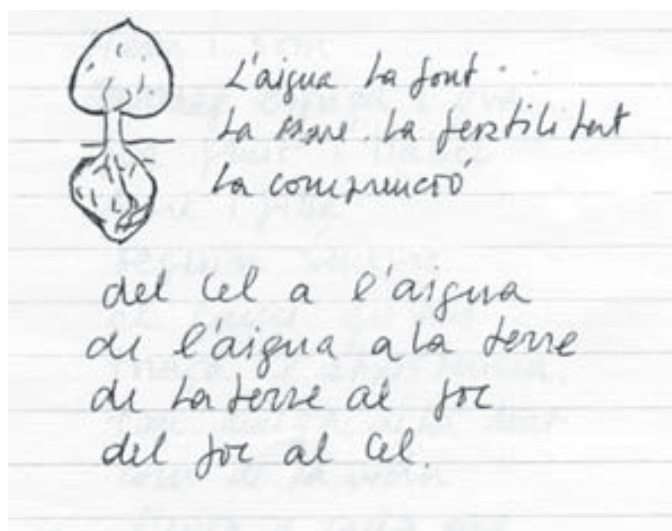 L'aigua la font.
La mare. La fertilitat
La comprenció
del cel a l'aigua
de l'aigua a la terre
de la terre al foc
del foc al cel.